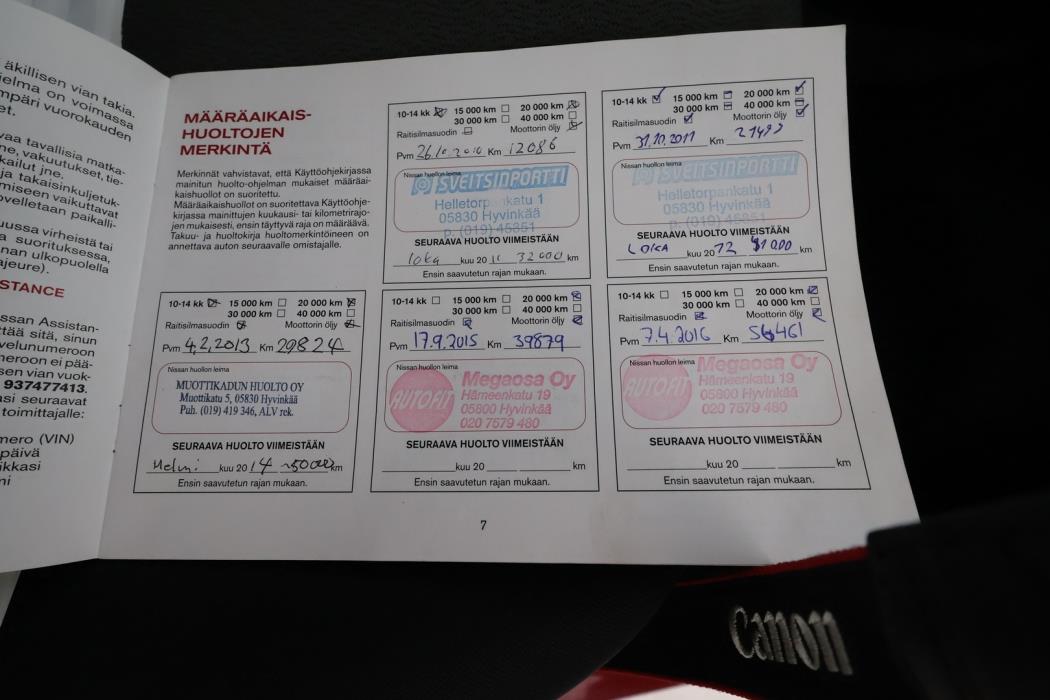 äkillisen vian takia.
elma on voimassa
mpäri vuorokauden
et.
vaa tavallisia matka-
ne, vakuutukset, tie-
kailut jne.
ja takaisinkuljetuk-
miseen vaikuttavat
ovelletaan paikalli-
uussa virheistä tai
a suorituksessa,
nan ulkopuolella
ajeure).
STANCE
ssan Assistan-
ttää sitä, sinun
velunumeroon
meroon ei pää-
sen vian vuok-
937477413.
asi seuraavat
toimittajalle:
mero (VIN)
päivä
ikkasi
ni
MÄÄRÄAIKAIS-
HUOLTOJEN
MERKINTÄ
Merkinnät vahvistavat, että Käyttöohjekirjassa
mainitun huolto-ohjelman mukaiset määräai-
kaishuollot on suoritettu.
Määräaikaishuollot on suoritettava Käyttöohje-
kirjassa mainittujen kuukausi- tai kilometrirajo-
jen mukaisesti, ensin täyttyvä raja on määräävä.
Takuu- ja huoltokirja huoltomerkintöineen on
annettava auton seuraavalle omistajalle.
10-14 kk 15 000 km 20 000 km
30 000 km 40 000 km
Raitisilmasuodin Moottorin öljy
Pvm 26.10.2010 Km 12086
Nissan huollon leima
SVEITSINPORTTI
Helletorpankatu 1
05830 Hyvinkää
p. (019) 45851
SEURAAVA HUOLTO VIIMEISTÄÄN
loka kuu 20 11 32000 km
Ensin saavutetun rajan mukaan.
10-14 kk 15 000 km 20 000 km
30 000 km 40 000 km
Raitisilmasuodin Moottorin öljy
Pvm 31.10.2011 Km
Nissan huollon leima
SVEITSINPORTTI
Helletorpankatu 1
05830 Hyvinkää
p. (019) 45851
SEURAAVA HUOLTO VIIMEISTÄÄN
LOKA kuu 20 12 km
Ensin saavutetun rajan mukaan.
10-14 kk 15 000 km 20 000 km
30 000 km 40 000 km
Raitisilmasuodin Moottorin öljy
Pvm 4.2.2013 Km 29824
Nissan huollon leima
MUOTTIKADUN HUOLTO OY
Muottikatu 5, 05830 Hyvinkää
Puh. (019) 419 346, ALV rek.
SEURAAVA HUOLTO VIIMEISTÄÄN
Helmi kuu 20 14 ~50000 km
Ensin saavutetun rajan mukaan.
10-14 kk 15 000 km 20 000 km
30 000 km 40 000 km
Raitisilmasuodin Moottorin öljy
Pvm 17.9.2015 Km 39879
Nissan huollon leima
AUTOFIT
Megaosa Oy
Hämeenkatu 19
05800 Hyvinkää
020 7579 480
SEURAAVA HUOLTO VIIMEISTÄÄN
kuu 20 km
Ensin saavutetun rajan mukaan.
10-14 kk 15 000 km 20 000 km
30 000 km 40 000 km
Raitisilmasuodin Moottorin öljy
Pvm 7.4.2016 Km
Nissan huollon leima
AUTOFIT
Megaosa Oy
Hämeenkatu 19
05800 Hyvinkää
020 7579 480
SEURAAVA HUOLTO VIIMEISTÄÄN
kuu 20 km
Ensin saavutetun rajan mukaan.
7
Canon